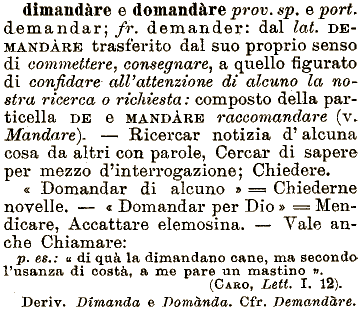 dimandàre e domandàre prov. sp. e port.
demandar; fr. demander: dal lat. DE-
MANDÀRE trasferito dal suo proprio senso
di commettere, consegnare, a quello figurato
di confidare all'attenzione di alcuno la no-
stra ricerca o richiesta: composto della par-
ticella DE e MANDÀRE raccomandare (v.
Mandare). — Ricercar notizia d'alcuna
cosa da altri con parole, Cercar di sapere
per mezzo d'interrogazione; Chiedere.
« Domandar di alcuno » = Chiederne
novelle. — « Domandar per Dio » = Men-
dicare, Accattare elemosina. — Vale an-
che Chiamare:
p. es.: « di quà la dimandano cane, ma secondo
l'usanza di costà, a me pare un mastino ».
(CARO, Lett. I. 12).
Deriv. Dimanda e Domànda. Cfr. Demandàre.